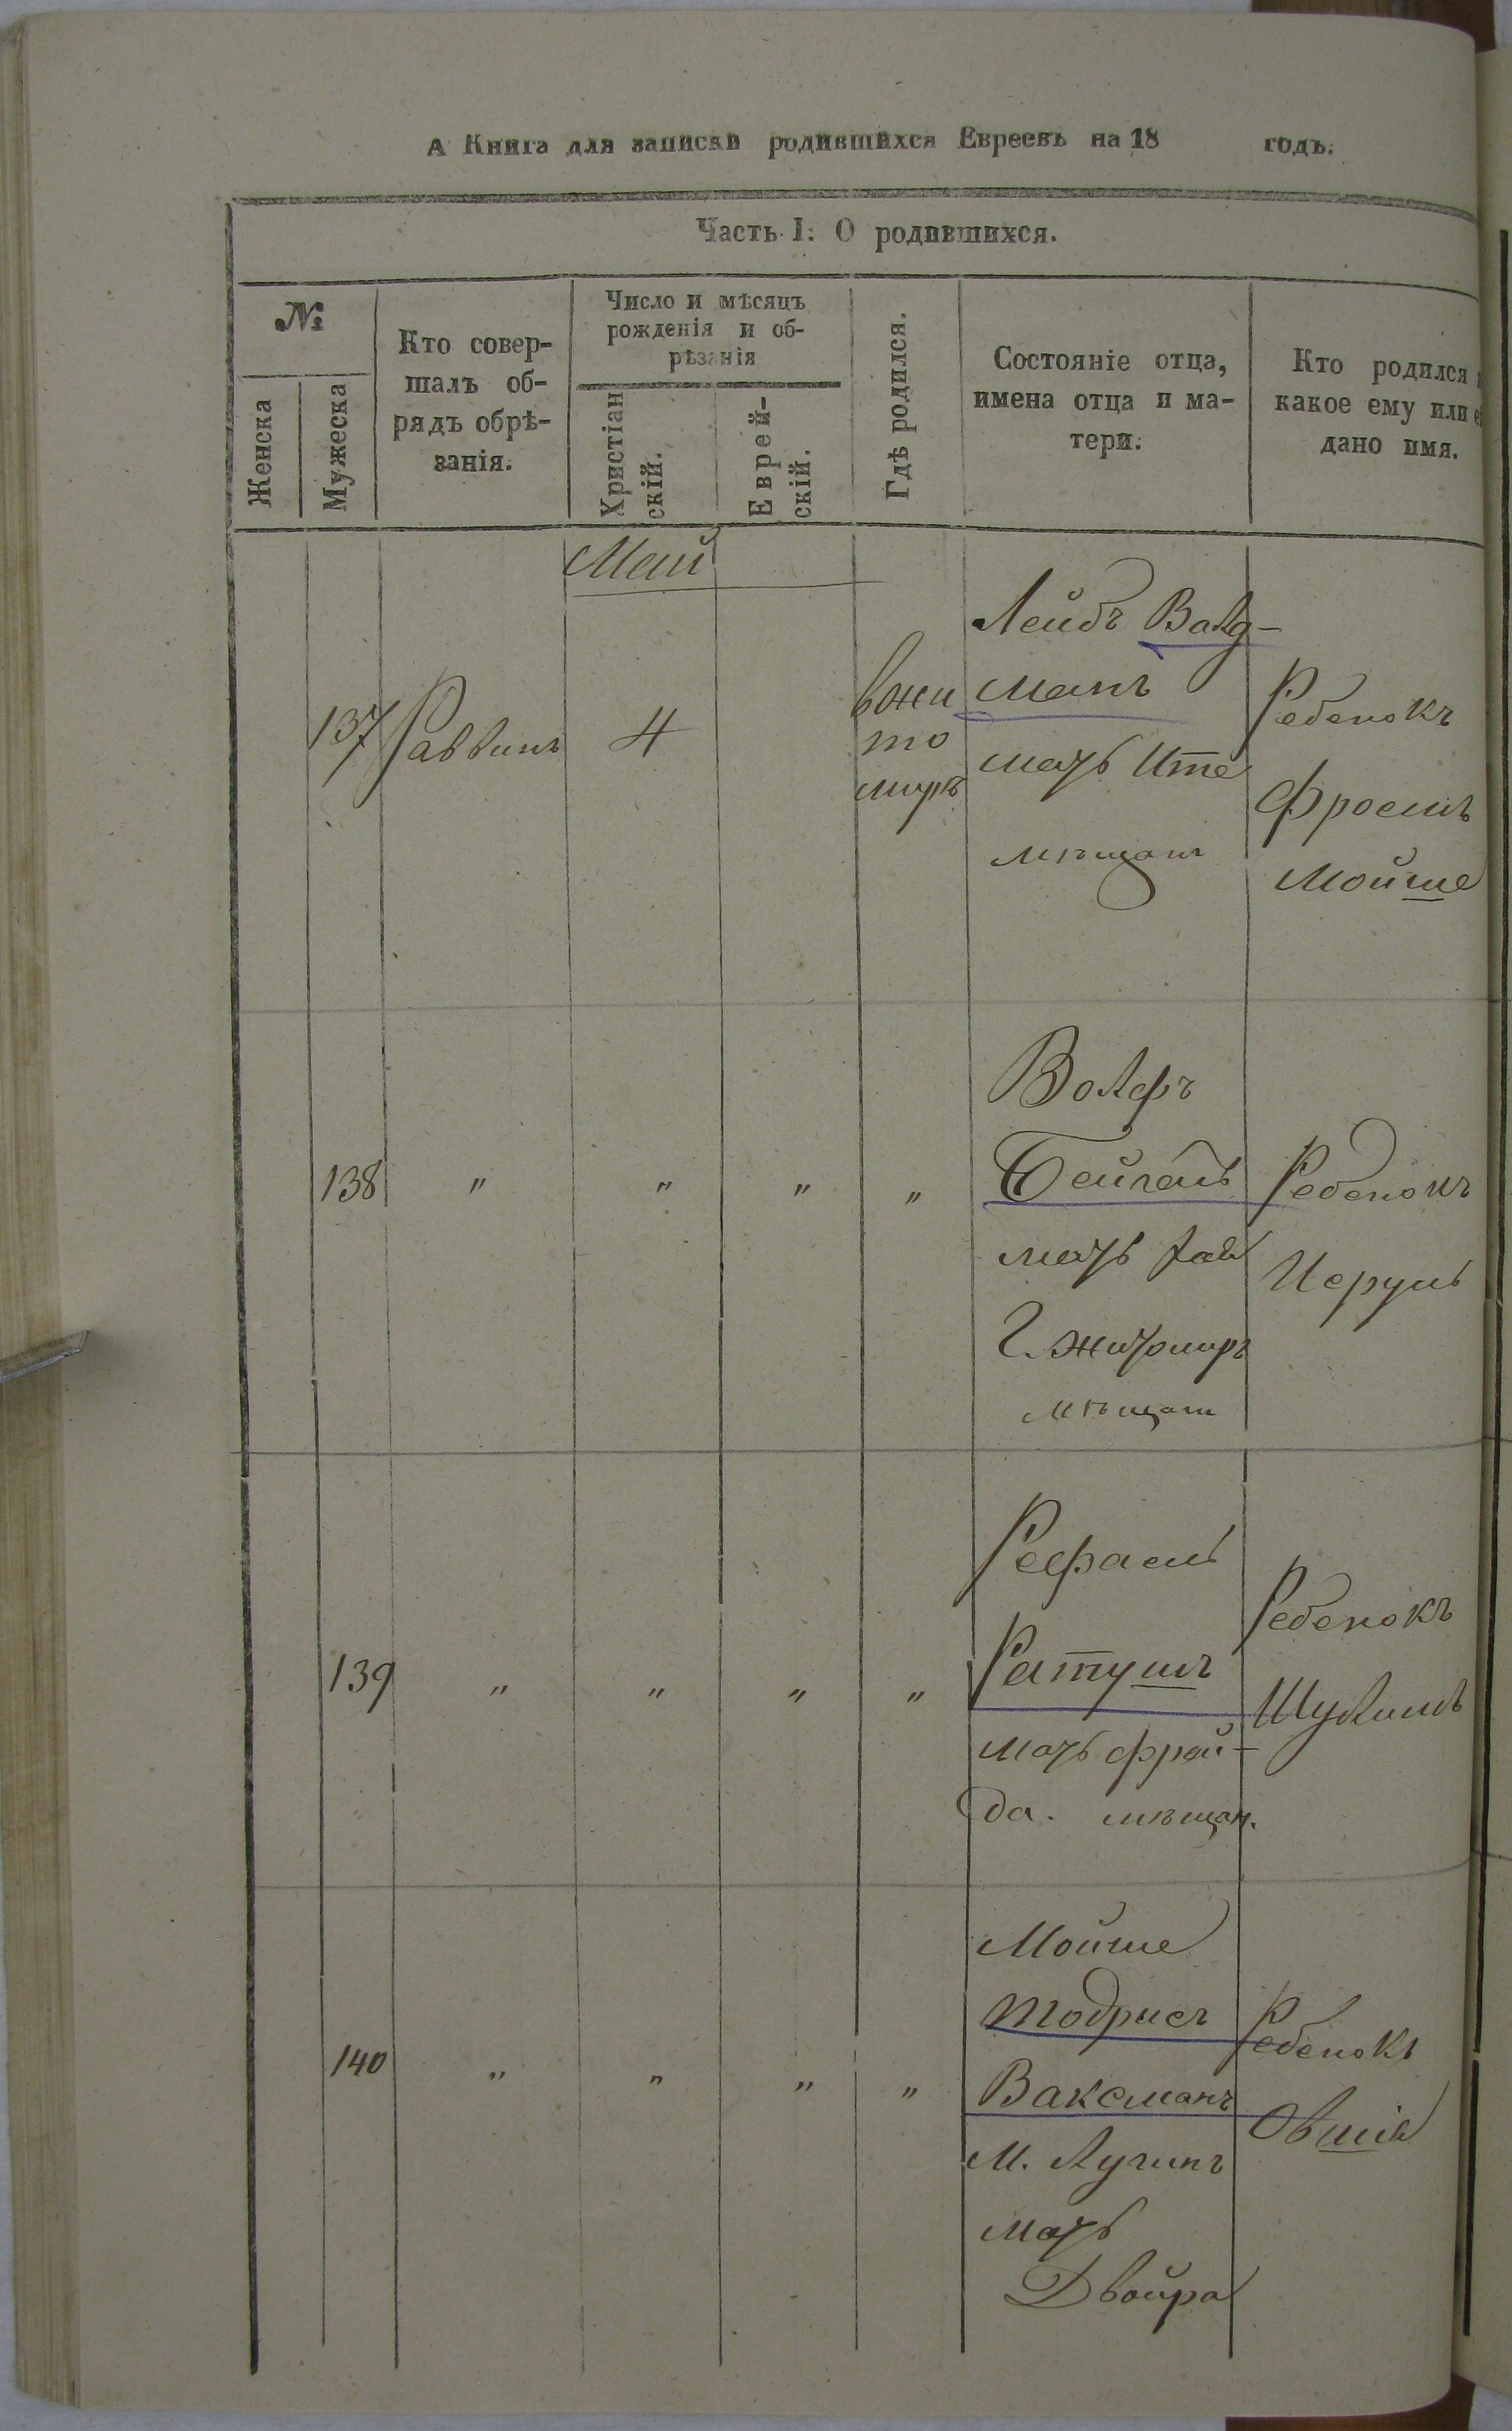 А Книга для записки родившихся Евреевъ на 18 годъ.
Часть I: О родившихся.
№
Женска
Мужеска
Кто совер-
шалъ об-
рядъ обрѣ-
занія.
Число и мѣсяцъ
рожденія и об-
рѣзанія
Христіан
скій.
Еврей-
скій.
Гдѣ родился.
Состояніе отца,
имена отца и ма-
тери.
Кто родился
какое ему или
дано имя.
Май
137
Раввинъ
4
вжи
то
миръ
Лейбъ Вальд-
манъ
мать Ите
мѣщан
Ребенокъ
Фроимъ
Мойше
138
"
"
"
"
Вольфъ
Бейгель
мать
г. Житомиръ
мѣщан
Ребенокъ
139
"
"
"
"
Рефаель
Ратушъ
мать Фрай-
да. мѣщан.
Ребенокъ
Шулимъ
140
"
"
"
"
Мойше
Тодрисъ
Ваксманъ
М. Лугинъ
мать
Двойра
Ребенокъ
Овшія